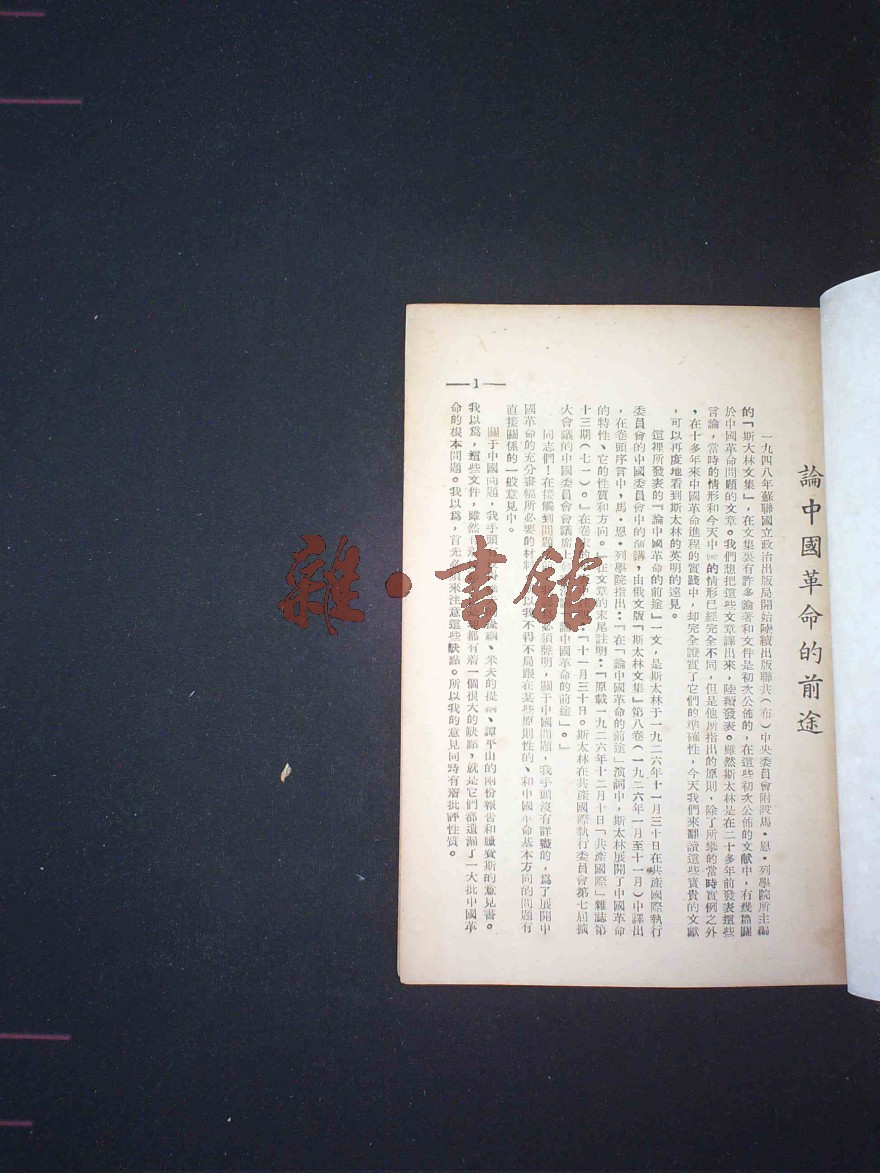 論中國革命的前途
一九四八年蘇聯國立政治出版局開始陸續出版聯共（布）中央委員會附設馬・恩・列學院所主編
的「斯大林文集」，在文集裏有許多論著和文件是初次公佈的，在這些初次公佈的文獻中，有幾篇關
於中國革命問題的文章。我們想把這些文章譯出來，陸續發表。雖然斯太林是在二十多年前發表這些
言論，當時的情形和今天中國的情形已經完全不同，但是他所指出的原則，除了所舉的當時實例之外
，在十多年來中國革命進程的實踐中，却完全證實了它們的準確性，今天我們來翻讀這些寶貴的文獻
，可以再度地看到斯太林的英明的遠見。
這裡所發表的『論中國革命的前途』一文，是斯太林于一九二六年十一月三十日在共產國際執行
委員會的中國委員會中的演講，由俄文版『斯太林文集』第八卷（一九二六年一月至十一月）中譯出
，在卷頭序言中，馬・恩・列學院指出：『在「論中國革命的前途」演詞中，斯太林展開了中國革命
的特性、它的性質和方向。』在文章的末尾註明：『原載一九二六年十二月十日「共產國際」雜誌第
十三期（七一）。』在卷末的 『十一月三十日。斯太林在共產國際執行委員會第七屆擴
大會議的中國委員會會議席上 論中國革命的前途」。』
同志們！在接觸到問題 必須聲明，關于中國問題，我手頭沒有詳盡的，爲了展開中
國革命的充分畫幅所必要的材料 以我不得不局跟在某些原則性的、和中國革命基本方向的問題有
直接關係的一般意見中。
關于中國問題，我手頭 提綱、米夫的提綱、譚平山的兩份報告和臘費斯的意見書。
我以爲，這些文件，雖然 都有着一個很大的缺點，就是它們都遺漏了一大批中國革
命的根本問題。我以爲，首先必須來注意這些缺點。所以我的意見同時有着批評性質。
1
雜・書館